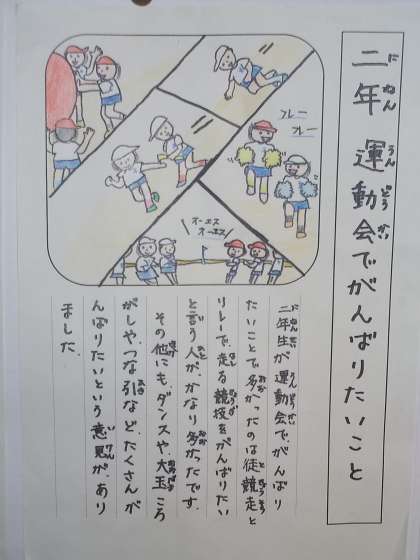 二年 運動会でがんばりたいこと
にねん うんどうかい
フレー
フレー
オーエス
オーエス
二年生が運動会で、がんばり
たいことで多かったのは徒競走と
リレーで、走る競技をがんばりたい
と言う人が、かなり多かったです。
その他にも、ダンスや、大玉ころ
がしや、つな引など、たくさんが
んばりたいという意見があり
ました。